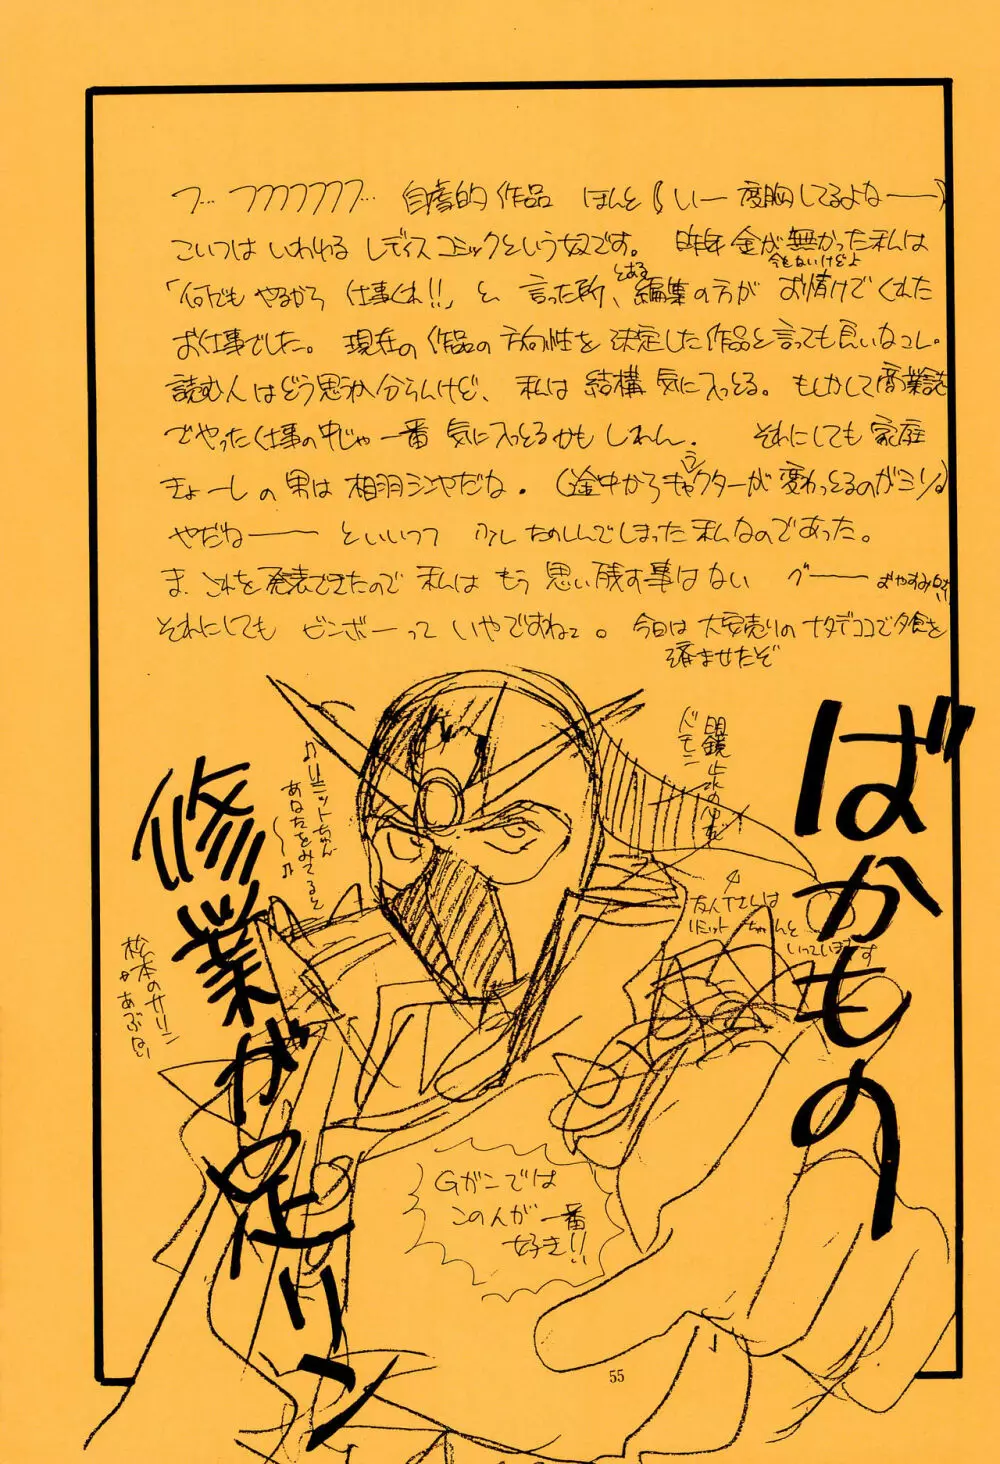 フ… フフフフフフフ… 自虐的作品 ほんと(いー度胸してるよなーー)
こいつは いわゆる レディスコミックという奴です。 昨年 金が無かった私は
今もないけどよ
「何でも やるから 仕事くれ!!」と 言った所、とある編集の方が お情けでくれた
お仕事でした。 現在の 作品の 方向性を 決定した作品と言っても良いなコレ。
読む人はどう思うか分らんけど、 私は 結構 気に入っとる。 もしかして商業誌
でやった仕事の中じゃ一番 気に入っとるかも しれん。 それにしても 家庭
きょーしの男は 相羽シンヤだな。(途中からキャラクターが変わっとるのがミソ。)
やだねーー といいつつ 少したのしんでしまった私なのであった。
ま、これを発表できたので 私は もう 思い残す事はない グーー おやすみ
それにしても ビンボーって いやですねェ。 今日は 大安売りの ナタデココで夕食を
済ませたぞ
ばかもの
修業が足リン
明鏡止水の
ドモン
♪リミットちゃん
あなたをみてると
〜♪
友人 は
リミットちゃんと
いっています
松本のサリン
があぶない
Gガンでは
この人が一番
好き!!
55